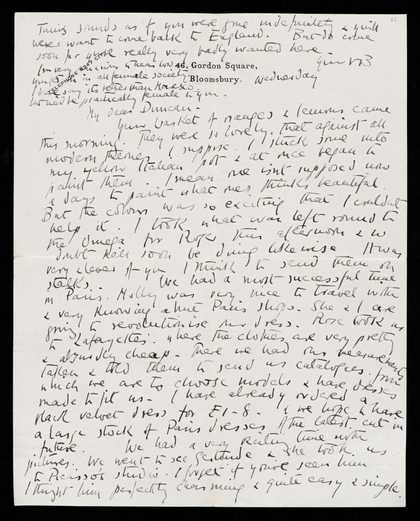 Tunis sounds as if you were gone indefinitely & you'll
never want to come back to England. But do come
soon for you're really very badly wanted here.
Your VB
46, Gordon Square,
Bloomsbury. Wednesday
in all female society
practically female to you.
My dear Duncan.
Your basket of oranges & lemons came
this morning. They were so lovely that against all
modern theories I suppose I stuck some into
my yellow Italian pot & at once began to
paint them. I mean one isn't supposed now
a days to paint what one thinks beautiful.
But the colour was so exciting that I couldn't
help it. I took what was left round to
the Omega for Roger this afternoon & no
doubt he'll soon be doing likewise. It was
very clever of you I think to send them on
stalks. We had a most successful time
in Paris. Molly was very nice to travel with
& very knowing about Paris shops. She & I are
going to revolutionise our dress. Rose took us
to Lafayettes where the clothes are very pretty
& absurdly cheap. There we had our measurements
taken & told them to send us catalogues from
which we are to choose models & have dresses
made to fit us. I have already ordered a
black velvet dress for £1-8. & we hope to have
a large stock of Paris dresses of the latest cut in
future. We had a very exciting time with
pictures. We went to see Gertrude & she took us
to Picasso's studio. I forget if you've seen him
I thought him perfectly charming & quite easy & simple.